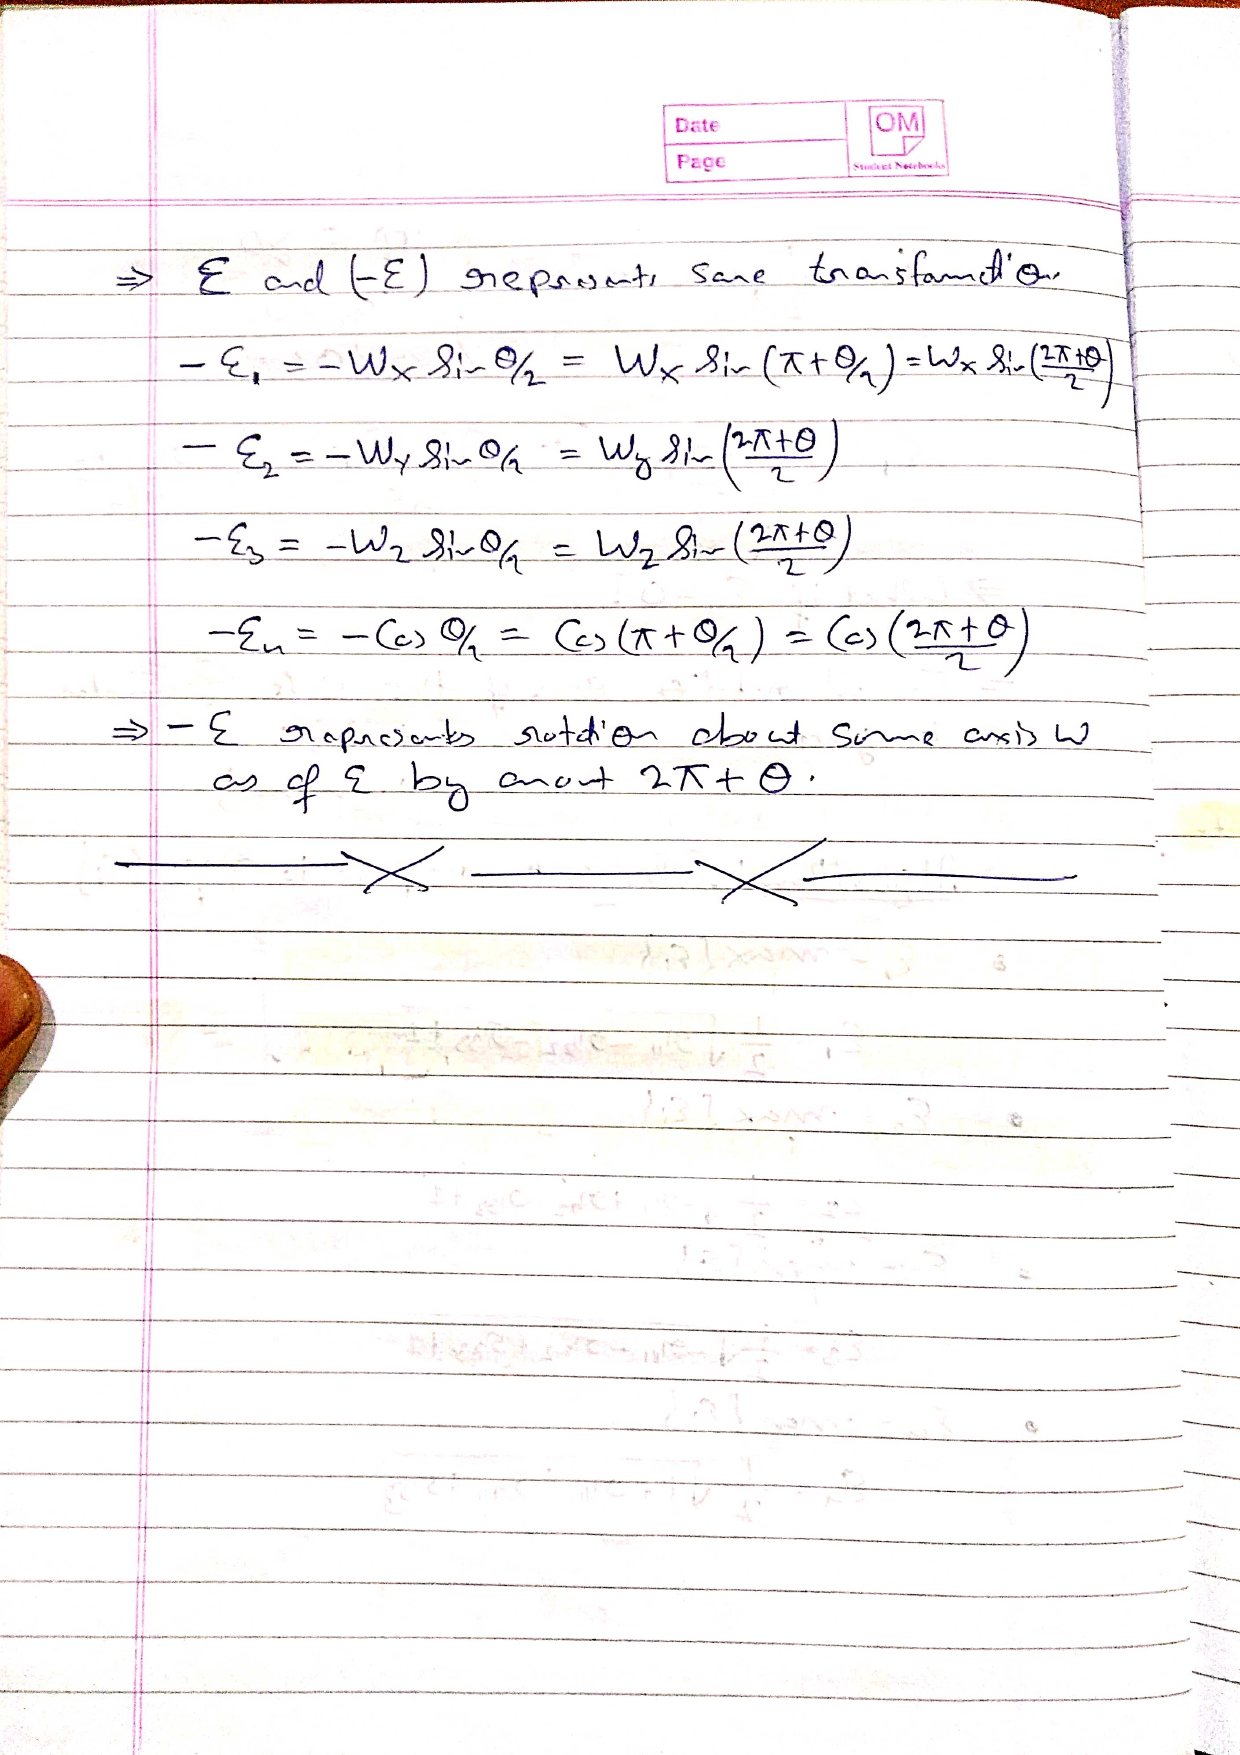 Date
Page
OM
Student Notebooks
⇒ ε and (-ε) represents same transformation
- ε₁ = - Wx Sin θ/2 = Wx Sin (π + θ/2) = Wx Sin (2π+θ/2)
- ε₂ = - Wy Sin θ/2 = Wy Sin (2π+θ/2)
- ε₃ = - Wz Sin θ/2 = Wz Sin (2π+θ/2)
- ε₄ = - Cos θ/2 = Cos (π + θ/2) = Cos (2π+θ/2)
⇒ - ε represents rotation about same axis W
as of ε by amount 2π + θ.